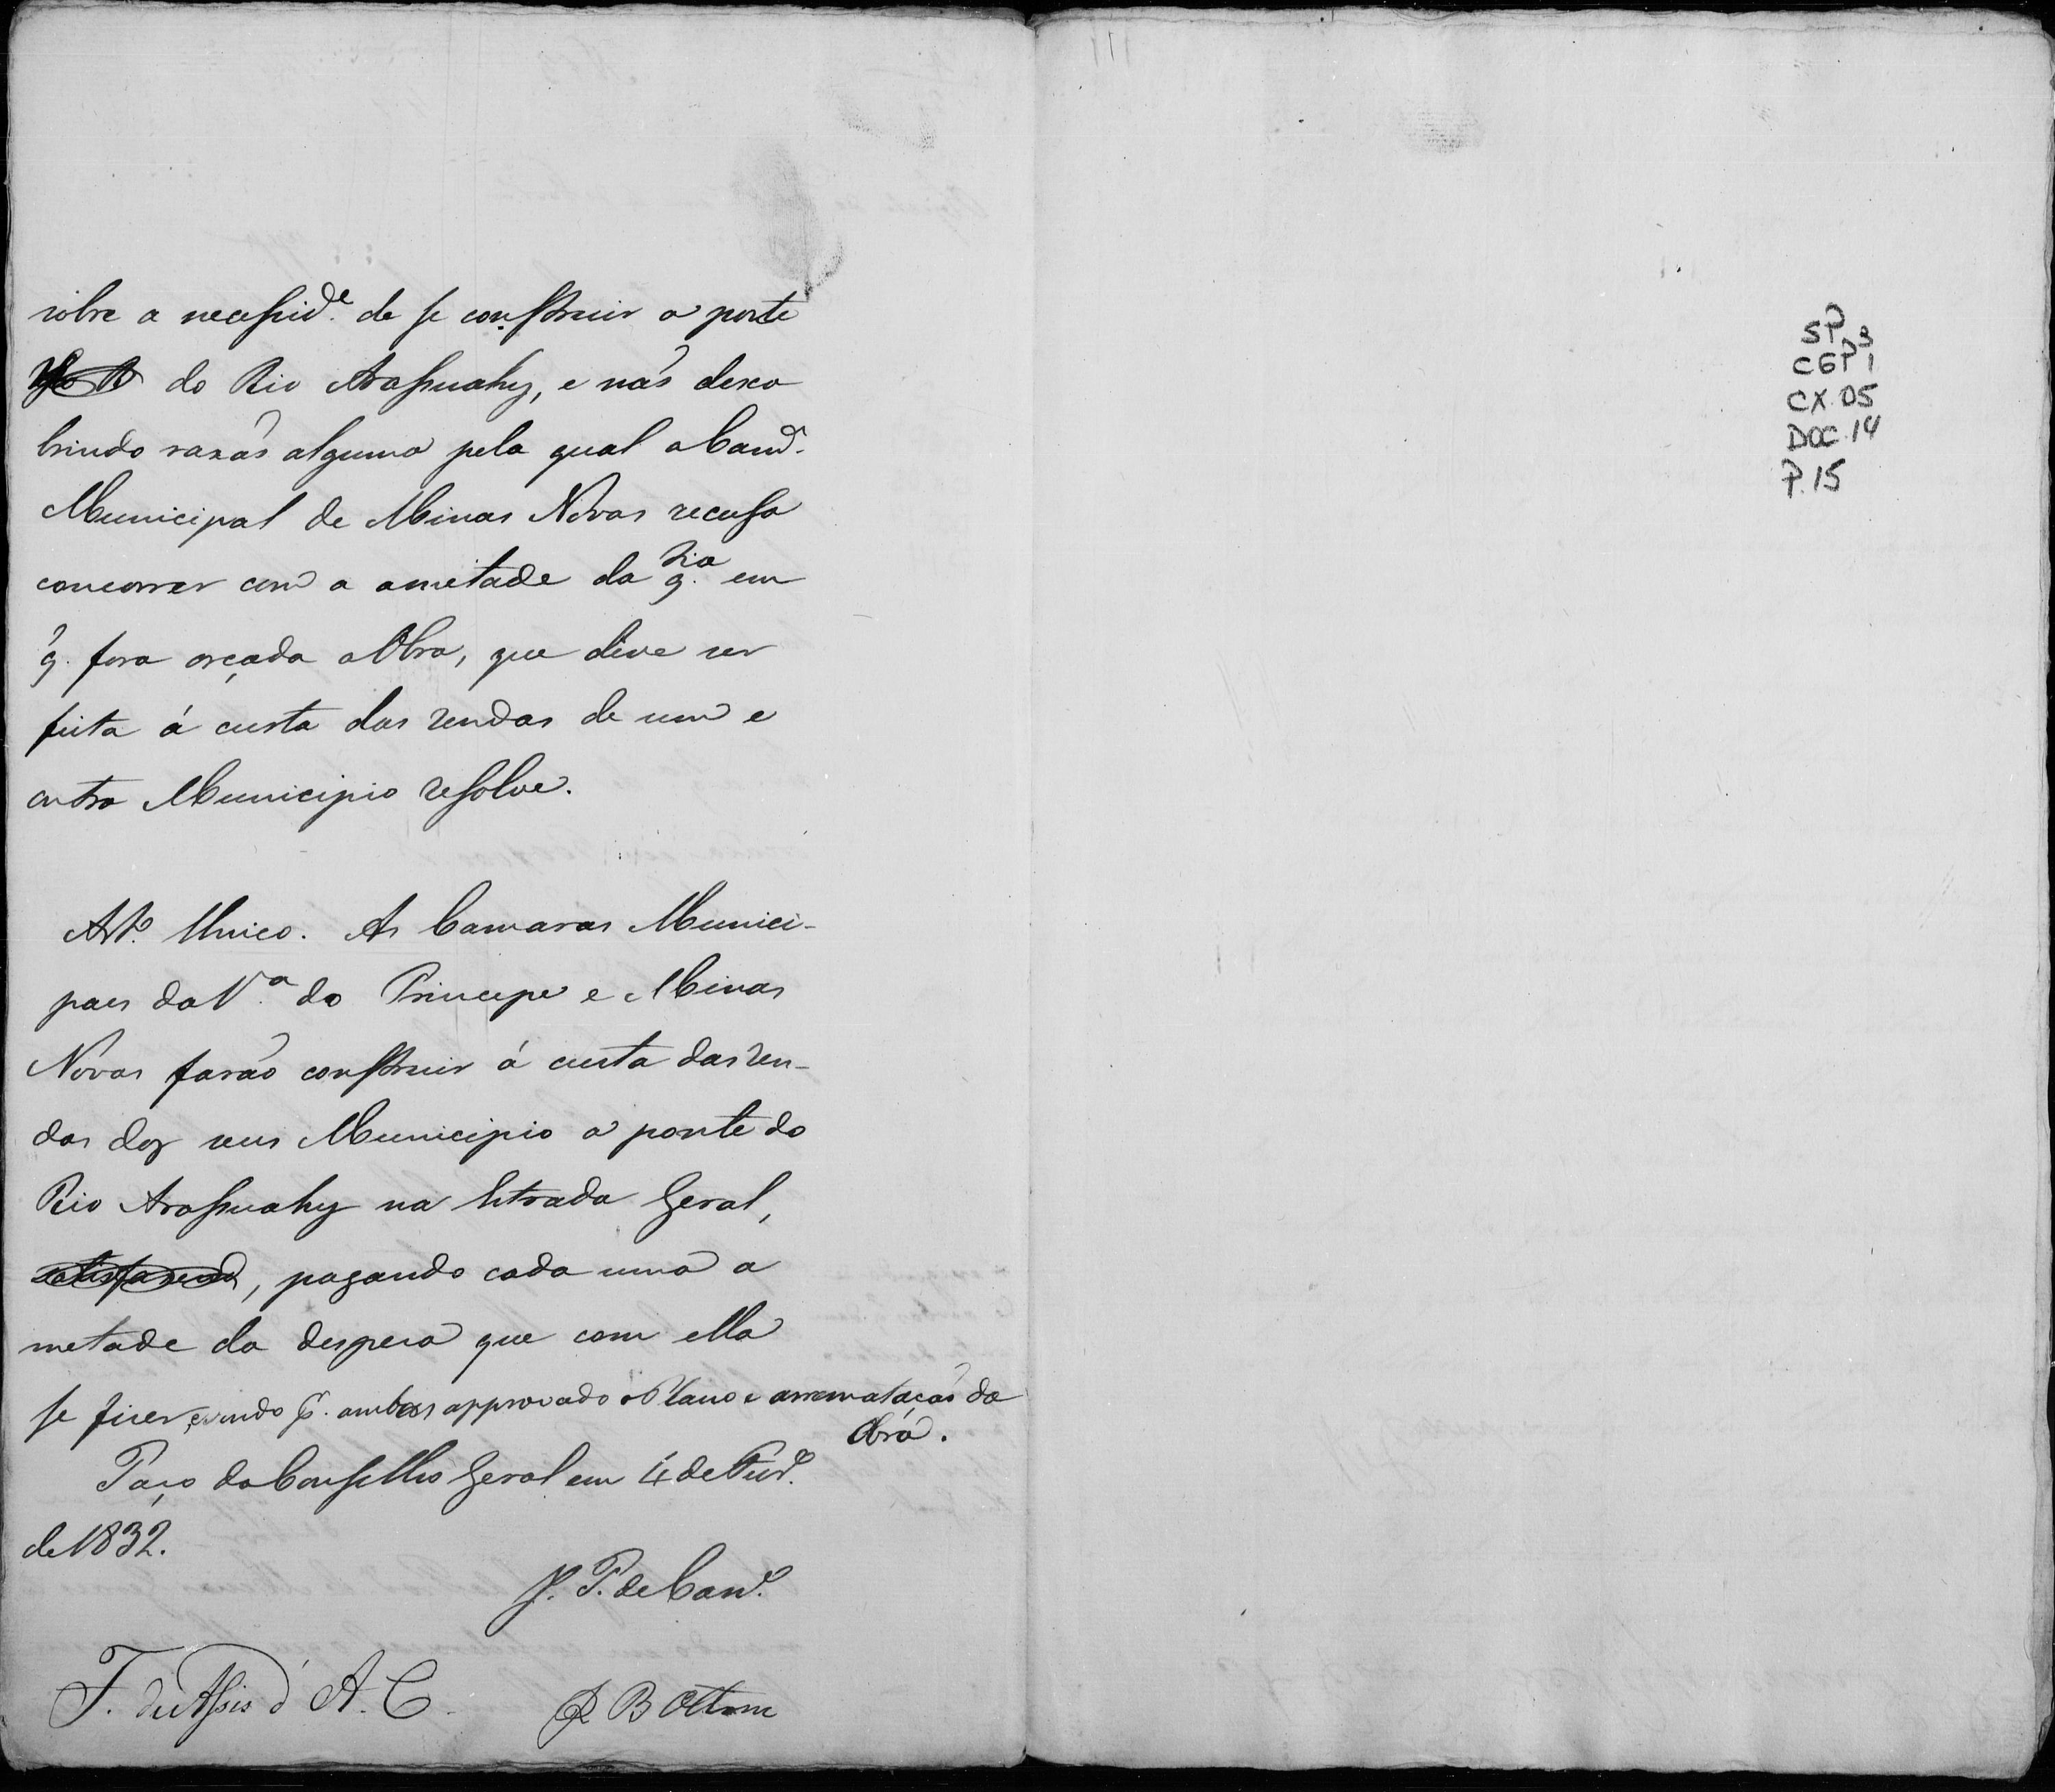 sobre a necessid.e de se construir a ponte
do Rio Arassuahy, e não desco
brindo razão alguma pela qual a Cam.a
Municipal de Minas Novas recusa
concorrer com a ametade da q.tia em
q. fora orçada a Obra, que deve ser
feita á custa das rendas de um e
outro Municipio resolve.
Art.o Unico. As Camaras Munici-
paes da V.a do Principe e Minas
Novas farão construir á custa das ren-
das dos seus Municipio a ponte do
Rio Arassuahy na Estrada Geral,
satisfazend, pagando cada uma a
metade da despeza que com ella
se fizer, sendo p. ambas approvado o Plano e arrematação da
Obra.
Paço do Conselho Geral em 4 de Fevr.o
de 1832.
J. P. de Carv.o
F. de Assis d'A. C.
B Ottoni
SP 3
CGP 1
CX. 05
DOC. 14
P. 15